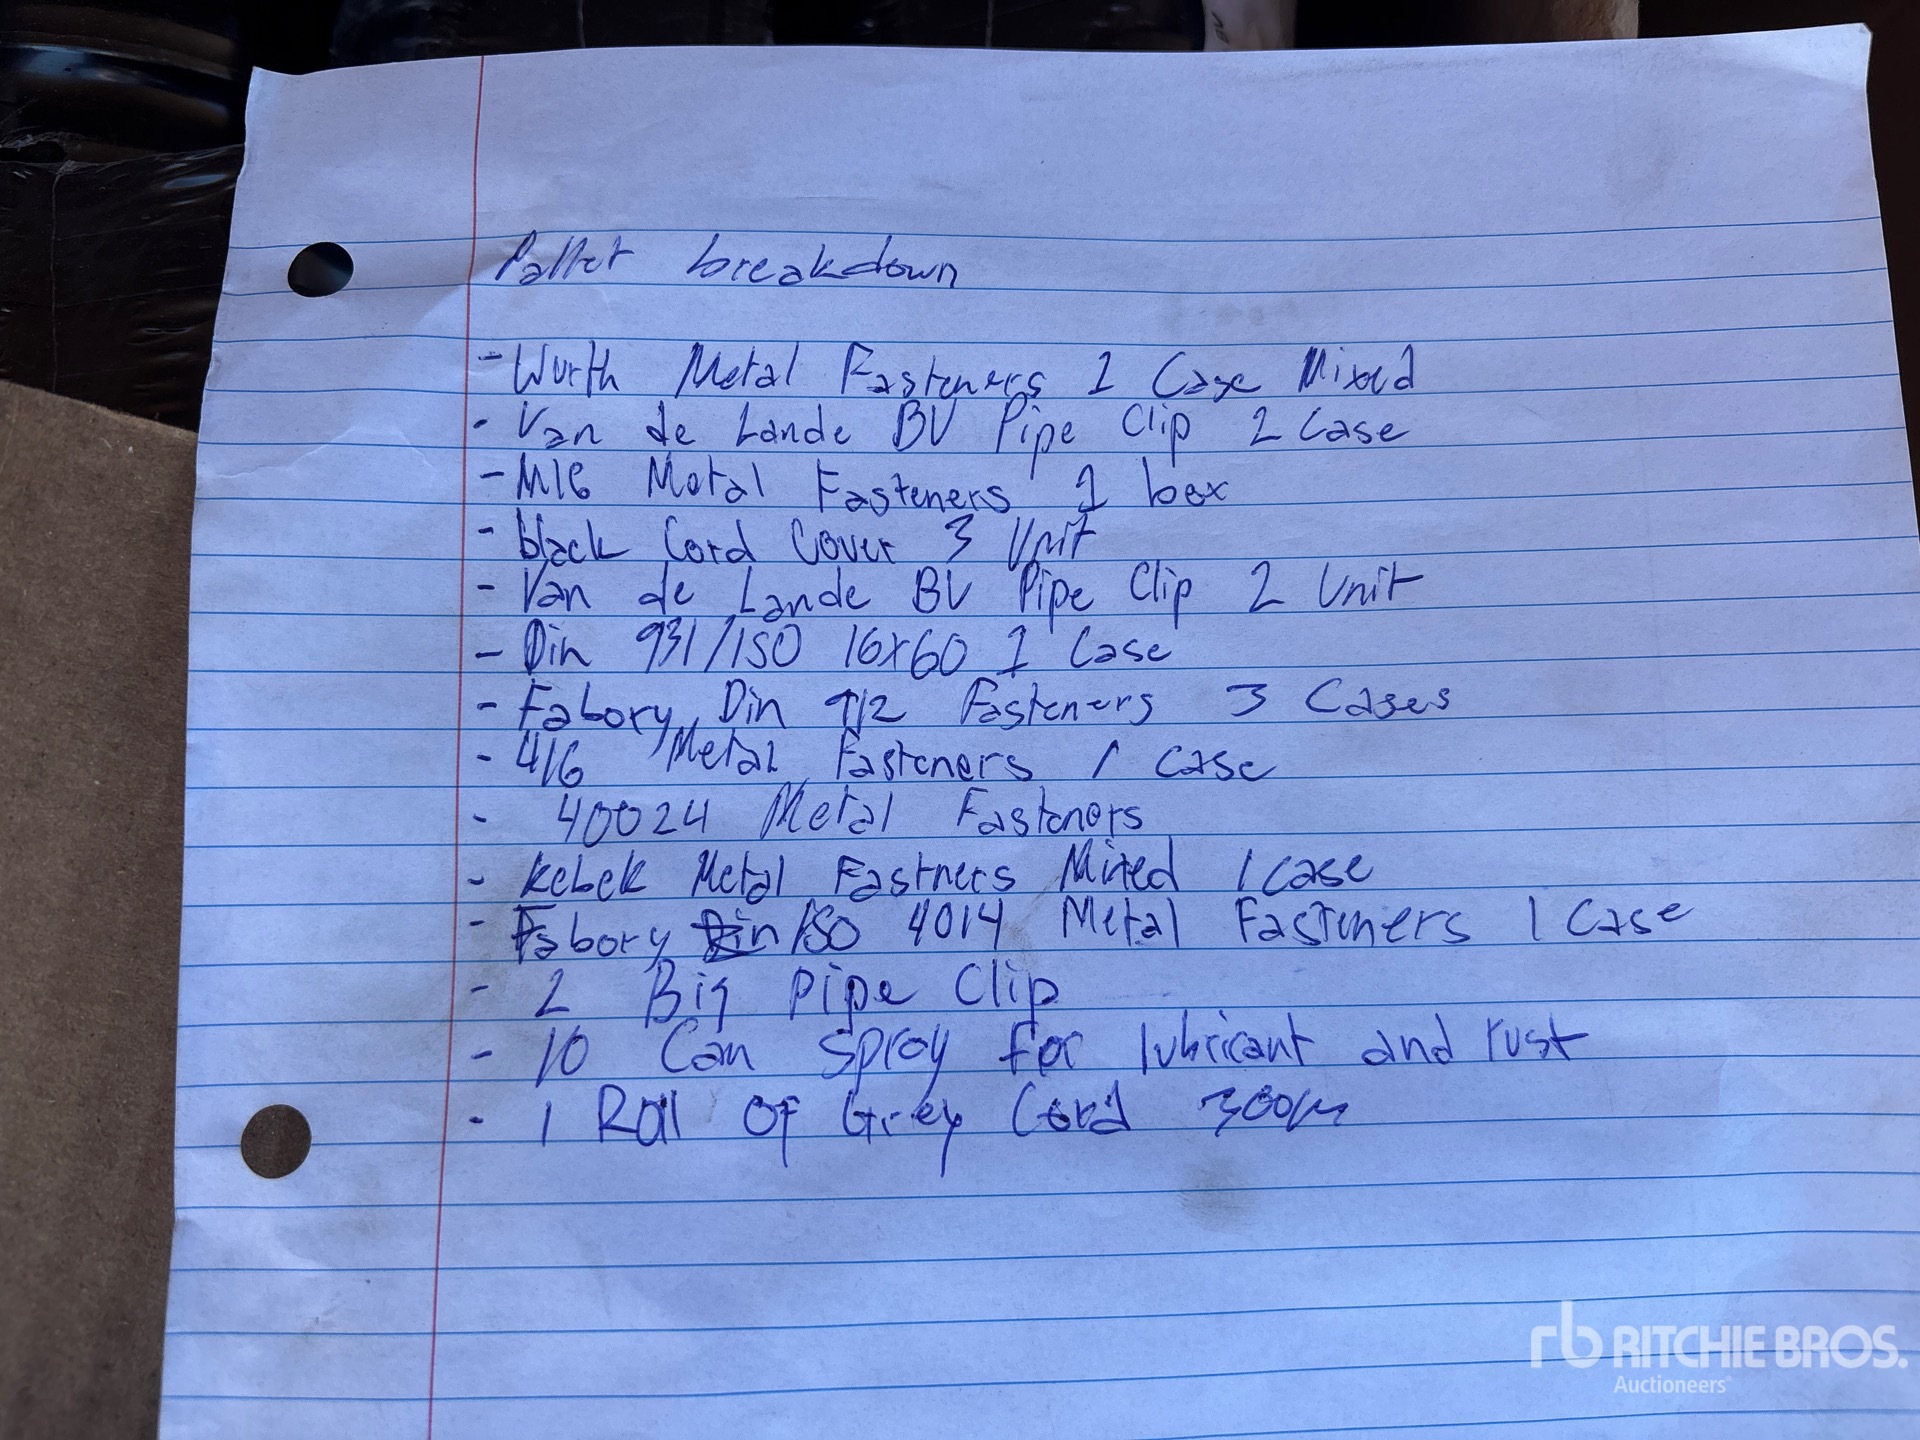 Pallet breakdown
- Wurth Metal Fasteners 1 Case Mixed
- Van de Lande BV Pipe Clip 2 Case
- M16 Metal Fasteners 1 box
- black Cord Cover 3 Unit
- Van de Lande BV Pipe Clip 2 Unit
- Din 931/ISO 16x60 1 Case
- Fabory Din 912 Fasteners 3 Cases
- 416 Metal Fasteners 1 case
- 40024 Metal Fasteners
- Kebek Metal Fastners Mixed 1 case
- Fabory Din/ISO 4014 Metal Fasteners 1 Case
- 2 Big pipe Clip
- 10 Can spray for lubricant and rust
- 1 Roll of Grey Cord 300m
rb RITCHIE BROS.
Auctioneers